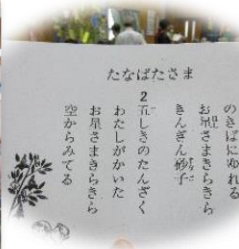 たなばたさま
のきばにゆれる
お星さまきらきら
きんぎん砂子
2
五しきのたんざく
わたしがかいた
お星さまきらきら
空からみてる